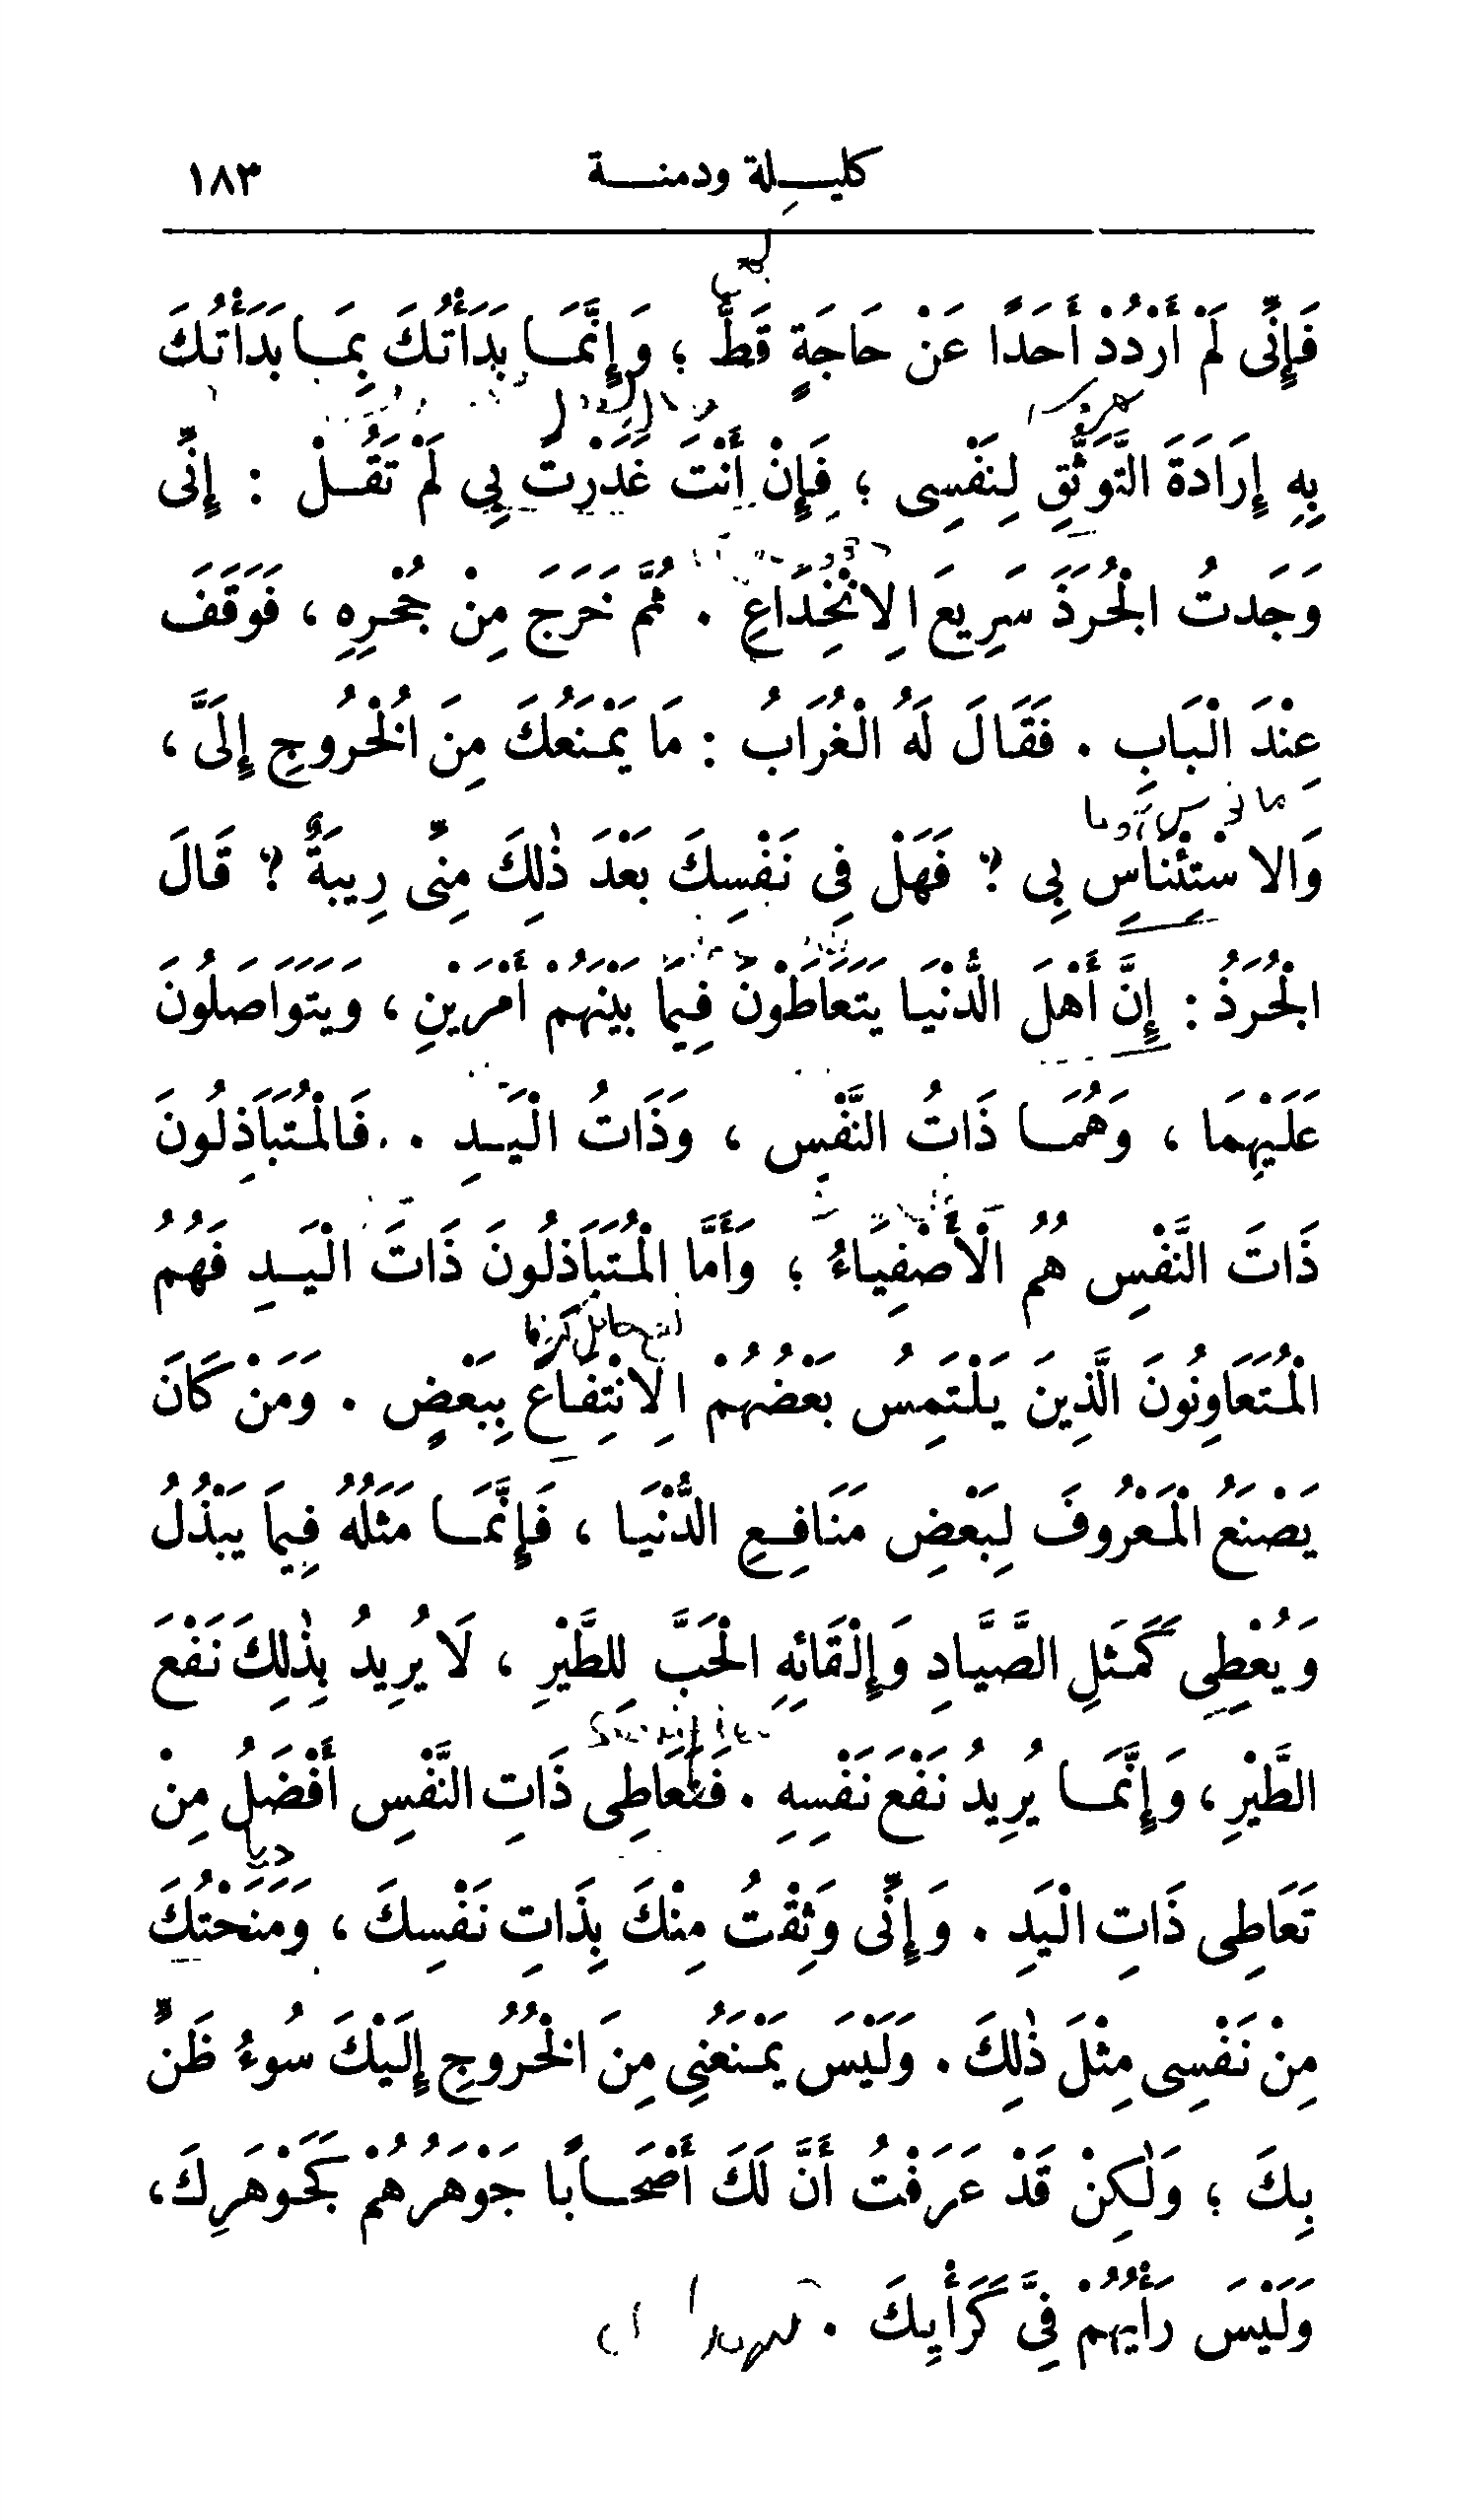 كليلة ودمنة ١٨٣
فَإِنِّى لَمْ أَرْدُدْ أَحَدًا عَنْ حَاجَةٍ قَطُّ ؛ وَإِنَّمَا بَدَأْتُكَ بِمَا بَدَأْتُكَ
بِهِ إِرَادَةَ التَّوَثُّقِ لِنَفْسِى ؛ فَإِنْ أَنْتَ غَدَرْتَ بِي لَمْ تَقُلْ : إِنِّى
وَجَدتُ الْجُرَذَ سَرِيعَ الِانْخِدَاعِ . ثُمَّ خَرَجَ مِنْ جُحْرِهِ ، فَوَقَفَ
عِنْدَ الْبَابِ . فَقَالَ لَهُ الْغُرَابُ : مَا يَمْنَعُكَ مِنَ الْخُرُوجِ إِلَىَّ ،
وَالاسْتِئْنَاسِ بِي ؟ فَهَلْ فِي نَفْسِكَ بَعْدَ ذٰلِكَ مِنِّى رِيبَةٌ ؟ قَالَ
الْجُرَذُ : إِنَّ أَهْلَ الدُّنْيَا يَتَعَاطَوْنَ فِيمَا بَيْنَهُمْ أَمْرَيْنِ ، وَيَتَوَاصَلُونَ
عَلَيْهِمَا ، وَهُمَا ذَاتُ النَّفْسِ ، وَذَاتُ الْيَدِ . فَالْمُتَبَاذِلُونَ
ذَاتَ النَّفْسِ هُمُ الْأَصْفِيَاءُ ؛ وَأَمَّا الْمُتَبَاذِلُونَ ذَاتَ الْيَدِ فَهُمُ
الْمُتَعَاوِنُونَ الَّذِينَ يَلْتَمِسُ بَعْضُهُمُ الِانْتِفَاعَ بِبَعْضٍ . وَمَنْ كَانَ
يَصْنَعُ الْمَعْرُوفَ لِبَعْضِ مَنَافِعِ الدُّنْيَا ، فَإِنَّمَا مَثَلُهُ فِيمَا يَبْذُلُ
وَيُعْطِى كَمَثَلِ الصَّيَّادِ وَإِلْقَائِهِ الْحَبَّ لِلطَّيْرِ ، لَا يُرِيدُ بِذٰلِكَ نَفْعَ
الطَّيْرِ ، وَإِنَّمَا يُرِيدُ نَفْعَ نَفْسِهِ . فَتَعَاطِى ذَاتِ النَّفْسِ أَفْضَلُ مِنْ
تَعَاطِى ذَاتِ الْيَدِ . وَإِنِّى وَثِقْتُ مِنْكَ بِذَاتِ نَفْسِكَ ، وَمَنَحْتُكَ
مِنْ نَفْسِى مِثْلَ ذٰلِكَ . وَلَيْسَ يَمْنَعُنِي مِنَ الْخُرُوجِ إِلَيْكَ سُوءُ ظَنٍّ
بِكَ ؛ وَلٰكِنْ قَدْ عَرَفْتُ أَنَّ لَكَ أَصْحَابًا جَوْهَرُهُمْ كَجَوْهَرِكَ ،
وَلَيْسَ رَأْيُهُمْ فِىَّ كَرَأْيِكَ .